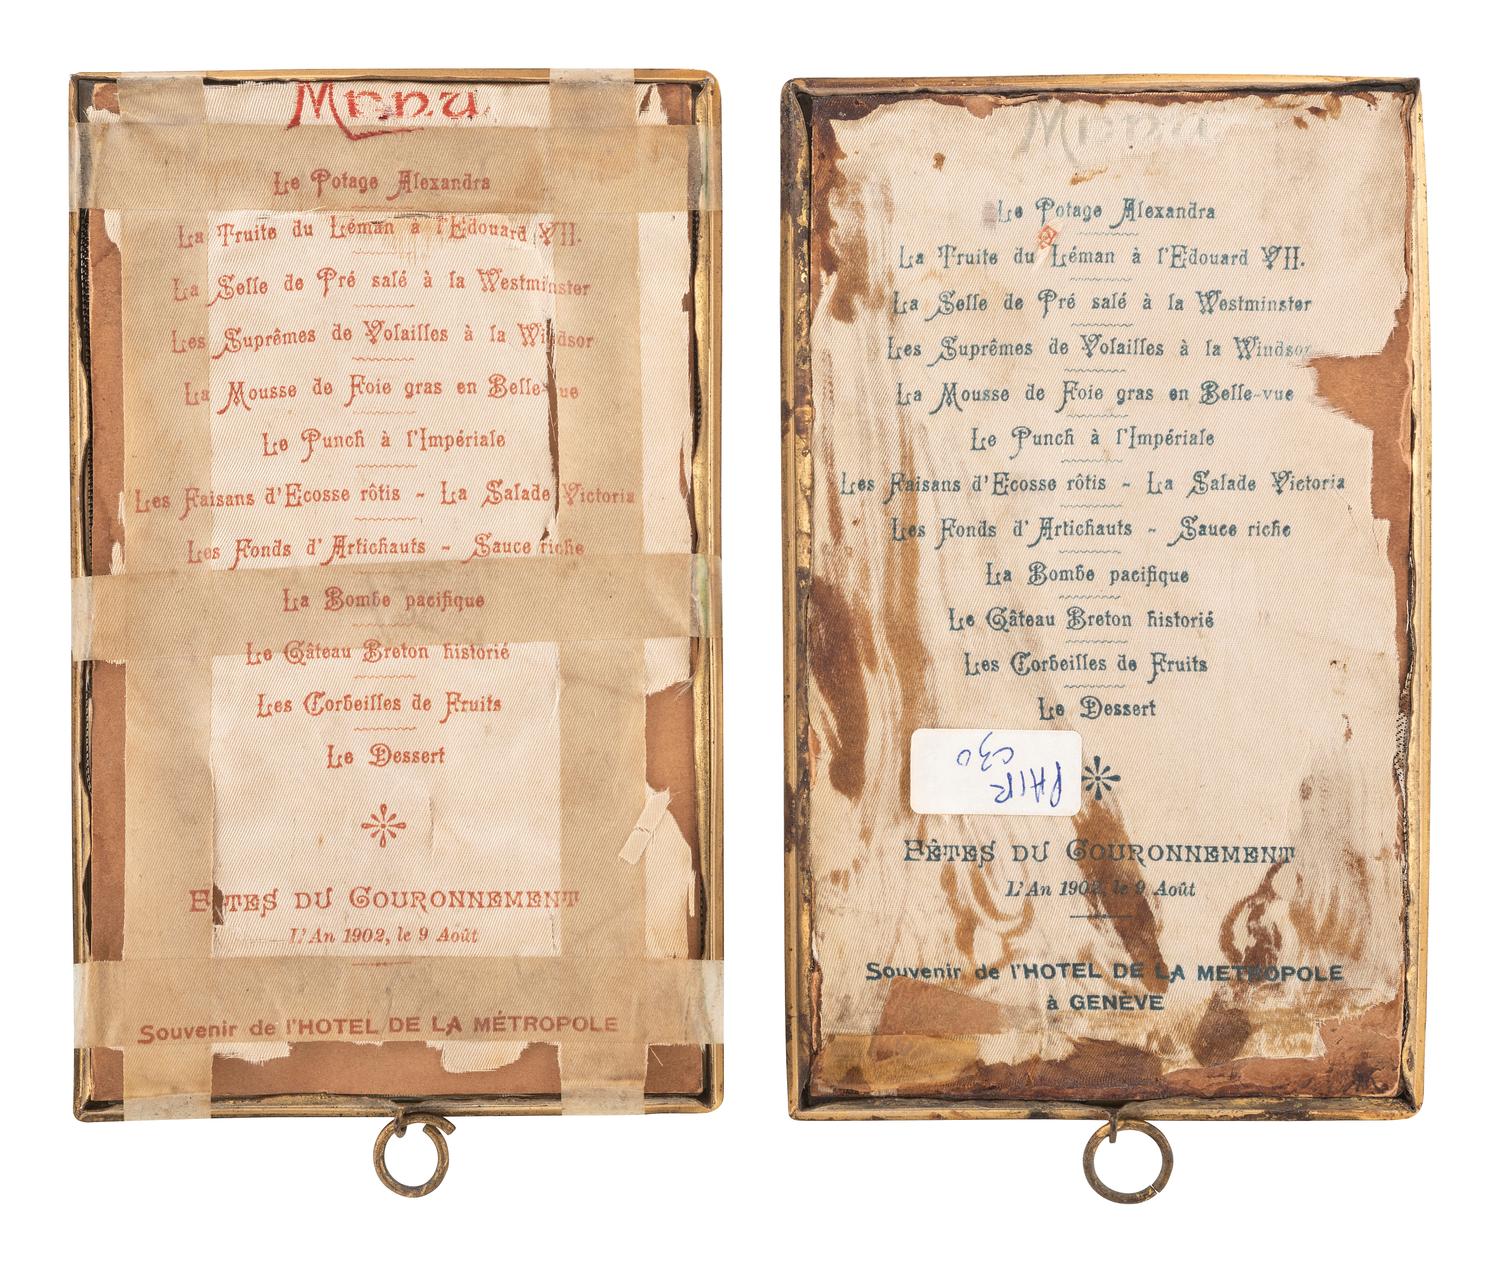 Menu
Le Potage Alexandra
La Truite du Léman à l'Edouard VII.
La Selle de Pré salé à la Westminster
Les Suprêmes de Volailles à la Windsor
La Mousse de Foie gras en Belle-vue
Le Punch à l'Impériale
Les Faisans d'Ecosse rôtis - La Salade Victoria
Les Fonds d'Artichauts - Sauce riche
La Bombe pacifique
Le Gâteau Breton historié
Les Corbeilles de Fruits
Le Dessert
FÊTES DU COURONNEMENT
L'An 1902, le 9 Août
Souvenir de l'HOTEL DE LA MÉTROPOLE
Menu
Le Potage Alexandra
La Truite du Léman à l'Edouard VII.
La Selle de Pré salé à la Westminster
Les Suprêmes de Volailles à la Windsor
La Mousse de Foie gras en Belle-vue
Le Punch à l'Impériale
Les Faisans d'Ecosse rôtis - La Salade Victoria
Les Fonds d'Artichauts - Sauce riche
La Bombe pacifique
Le Gâteau Breton historié
Les Corbeilles de Fruits
Le Dessert
PAIR
C30
FÊTES DU COURONNEMENT
L'An 1902, le 9 Août
Souvenir de l'HOTEL DE LA METROPOLE
à GENÈVE